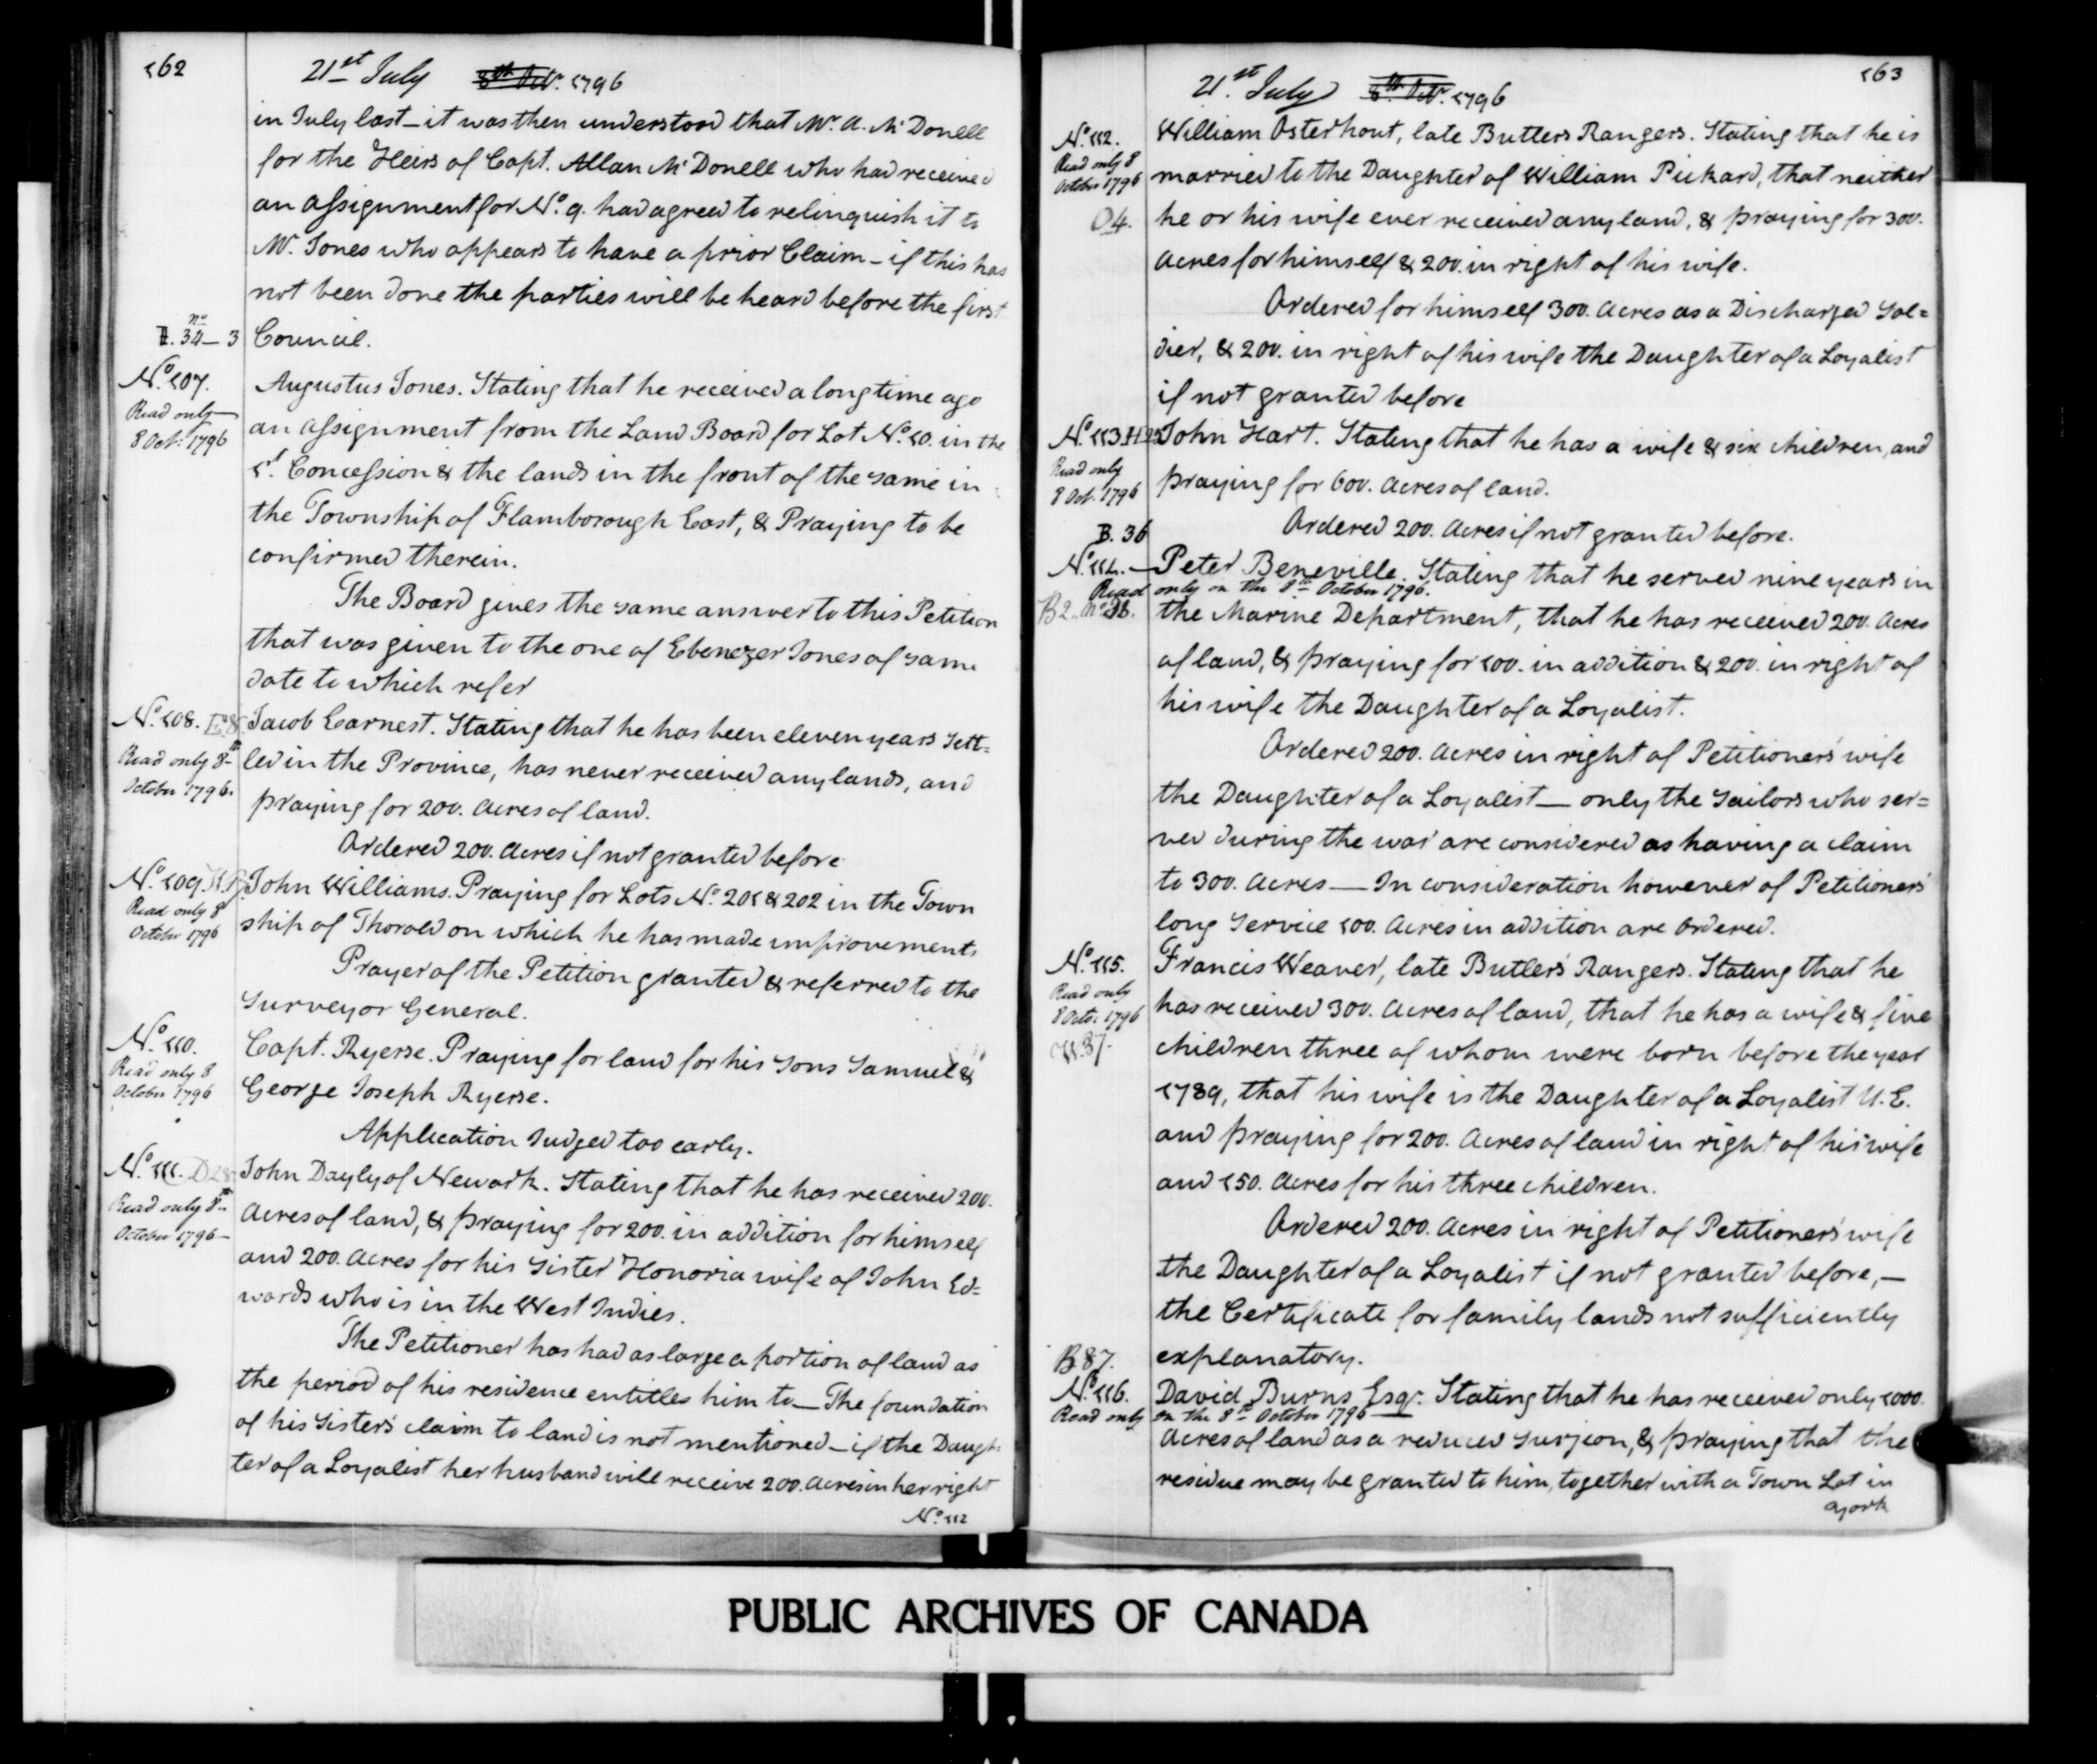 162
21st July 8th Octr. 1796
in July last _ it was then understood that Mr. A. McDonell
for the Heirs of Capt. Allan McDonell who had received
an assignment for No. 9. had agreed to relinquish it to
Mr. Jones who appears to have a prior Claim _ if this has
not been done the parties will be heard before the first
Council.
No. 107.
Read only
8 Oct: 1796
Augustus Jones. Stating that he received a long time ago
an assignment from the Land Board for Lot No. 10. in the
1st. Concession & the lands in the front of the same in
the Township of Flamborough East, & Praying to be
confirmed therein.
The Board gives the same answer to this Petition
that was given to the one of Ebenezer Jones of same
date to which refer
No. 108. E. 8.
Read only 8th
October 1796.
Jacob Earnest. Stating that he has been eleven years sett=
led in the Province, has never received any lands, and
praying for 200. Acres of land.
Ordered 200. Acres if not granted before
No. 109.
Read only 8
October 1796
John Williams. Praying for Lots No. 201 & 202 in the Town
ship of Thorold on which he has made improvements
Prayer of the Petition granted & referred to the
Surveyor General.
No. 110.
Read only 8
October 1796
Capt. Ryerse. Praying for land for his Sons Samuel &
George Joseph Ryerse.
Application Judged too early.
No. 111. D28
Read only 8th
October 1796 _
John Dayly of Newark. Stating that he has received 200.
Acres of land, & praying for 200. in addition for himself
and 200. Acres for his Sister Honoria wife of John Ed=
wards who is in the West Indies.
The Petitioner has had as large a portion of land as
the period of his residence entitles him to _ The foundation
of his Sister's claim to land is not mentioned _ if the Daugh=
ter of a Loyalist her husband will receive 200. Acres in her right
No. 112
163
21st. July 8th. Octr. 1796
No. 112.
Read only 8
October 1796
O4.
William Osterhout, late Butlers Rangers. Stating that he is
married to the Daughter of William Pickard, that neither
he or his wife ever received any land, & praying for 300.
Acres for himself & 200. in right of his wife.
Ordered for himself 300. Acres as a Discharged Sol=
dier, & 200. in right of his wife the Daughter of a Loyalist
if not granted before
No. 113.
Read only
8 Oct. 1796
John Hart. Stating that he has a wife & six children, and
praying for 600. Acres of land.
Ordered 200. Acres if not granted before.
B. 36
No. 114. _ Peter Beneville. Stating that he served nine years in
Read only on the 8th October 1796.
the Marine Department, that he has received 200. Acres
of land, & praying for 100. in addition & 200. in right of
his wife the Daughter of a Loyalist.
Ordered 200. Acres in right of Petitioner's wife
the Daughter of a Loyalist _ only the Sailors who ser=
ved during the war are considered as having a claim
to 300. Acres _ In consideration however of Petitioners
long Service 100. Acres in addition are Ordered.
No. 115.
Read only
8 Octr. 1796
W. 37.
Francis Weaver, late Butler's Rangers. Stating that he
has received 300. Acres of land, that he has a wife & five
children three of whom were born before the year
1789, that his wife is the Daughter of a Loyalist U.E.
and praying for 200. Acres of land in right of his wife
and 150. Acres for his three children.
Ordered 200. Acres in right of Petitioner's wife
the Daughter of a Loyalist if not granted before, _
the Certificate for family lands not sufficiently
explanatory.
B 87.
No. 116.
David Burns Esqr. Stating that he has received only 1000.
Read only on the 8th October 1796 _
Acres of land as a reduced Surjeon, & praying that the
residue may be granted to him, together with a Town Lot in
York
PUBLIC ARCHIVES OF CANADA